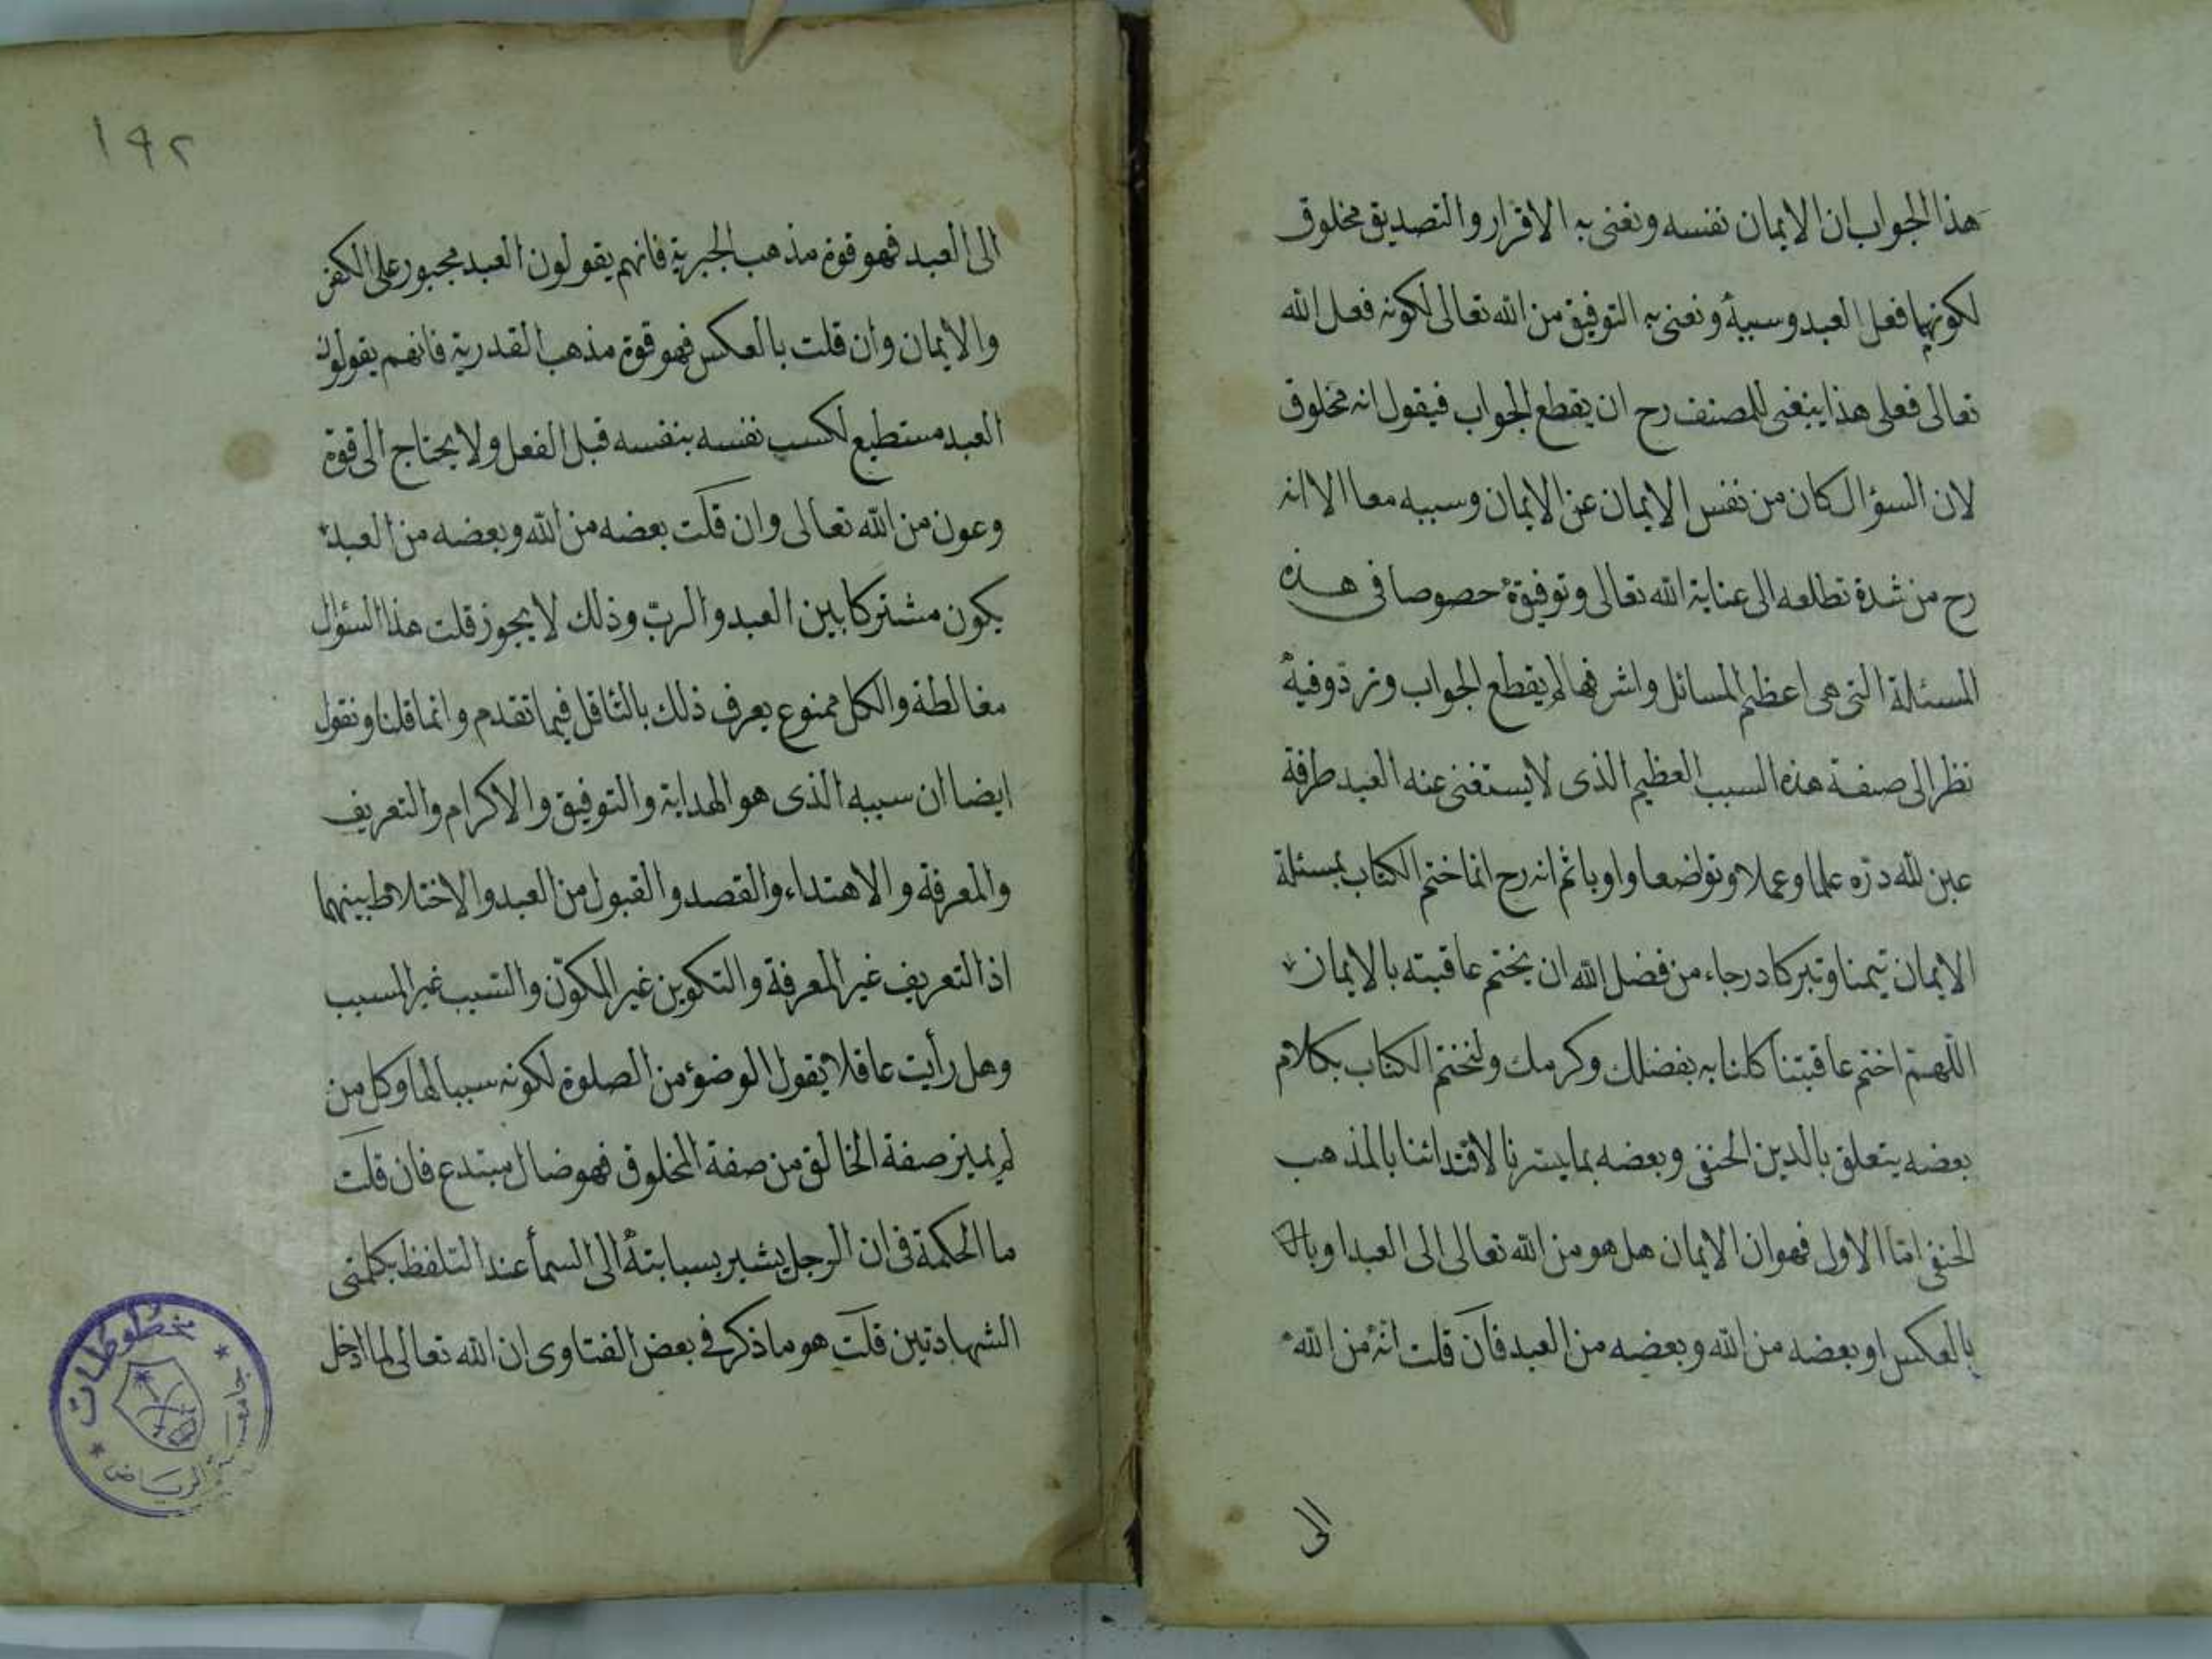 هذا الجواب ان الايمان نفسه ونعنى به الاقرار والتصديق مخلوق
لكونهما فعل العبد وسببه ونعنى به التوفيق من الله تعالى لكونه فعل الله
تعالى فعلى هذا ينبغى للمصنف رح ان يقطع الجواب فيقول انه مخلوق
لان السؤال كان من نفس الايمان عن الايمان وسببه معا الا انه
رح من شدة تطلعه الى عناية الله تعالى وتوفيقه خصوصا فى هذه
المسئلة التى هى اعظم المسائل واشرفها لم يقطع الجواب وتردد فيه
نظرا الى صفة هذه السبب العظيم الذى لا يستغنى عنه العبد طرفة
عين لله دره علما وعملا وتواضعا وادبا ثم انه رح انما ختم الكتاب بمسئلة
الايمان تيمنا وتبركا درجاء من فضل الله ان يختم عاقبته بالايمان
اللهم اختم عاقبتنا كلنا به بفضلك وكرمك ولنختم الكتاب بكلام
بعضه يتعلق بالدين الحنفى وبعضه بما يسرنا لاقتدائنا بالمذهب
الحنفى اما الاول فهو ان الايمان هل هو من الله تعالى الى العبد او
بالعكس او بعضه من الله وبعضه من العبد فان قلت انه من الله
الى
١٩٢
الى العبد فهو قوة مذهب الجبرية فانهم يقولون العبد مجبور على الكفر
والايمان وان قلت بالعكس فهو قوة مذهب القدرية فانهم يقولون
العبد مستطيع لكسب نفسه بنفسه قبل الفعل ولا يحتاج الى قوة
وعون من الله تعالى وان قلت بعضه من الله وبعضه من العبد
يكون مشتركا بين العبد والرب وذلك لا يجوز قلت هذا السئوال
مغالطة والكل ممنوع يعرف ذلك بالتاقل فيما تقدم وانما قلنا ونقول
ايضا ان سببه الذى هو الهداية والتوفيق والاكرام والتعريف
والمعرفة والاهتداء والقصد والقبول من العبد والاختلاط بينهما
اذ التعريف غير المعرفة والتكوين غير المكون والتسبب غير المسبب
وهل رأيت عاقلا يقول الوضوء من الصلوة لكونه سببا لها وكل من
لم يميز صفة الخالق من صفة المخلوق فهو ضال مبتدع فان قلت
ما الحكمة فى ان الرجل يشير بسبابته الى السمأ عند التلفظ بكلمتى
الشهادتين قلت هو ما ذكر فى بعض الفتاوى ان الله تعالى لما ادخل
مخطوطات
جامعة الرياض